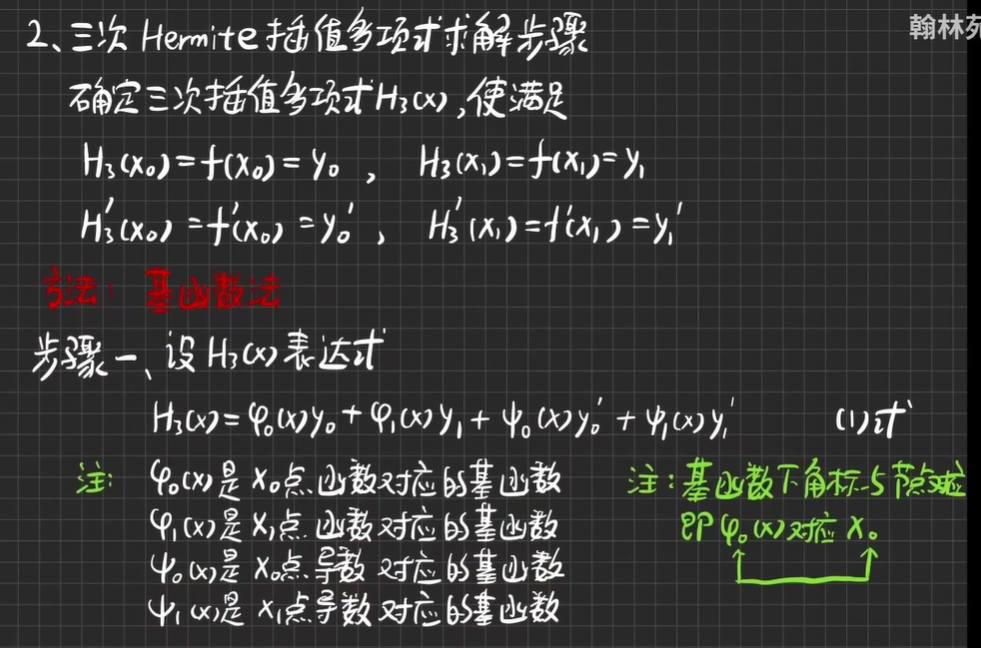 翰林苑
2、三次 Hermite 插值多项式求解步骤
确定三次插值多项式H₃(x),使满足
H₃(x₀)=f(x₀)=y₀ , H₃(x₁)=f(x₁)=y₁
H₃'(x₀)=f'(x₀)=y₀' , H₃'(x₁)=f'(x₁)=y₁'
方法：基函数法
步骤一、设 H₃(x) 表达式
H₃(x)=φ₀(x)y₀+φ₁(x)y₁+ψ₀(x)y₀'+ψ₁(x)y₁' (1)式
注: φ₀(x)是 x₀点函数对应的基函数
φ₁(x)是 x₁点函数对应的基函数
ψ₀(x)是 x₀点导数对应的基函数
ψ₁(x)是 x₁点导数对应的基函数
注:基函数下角标与节点对应
即 φ₀(x)对应 x₀